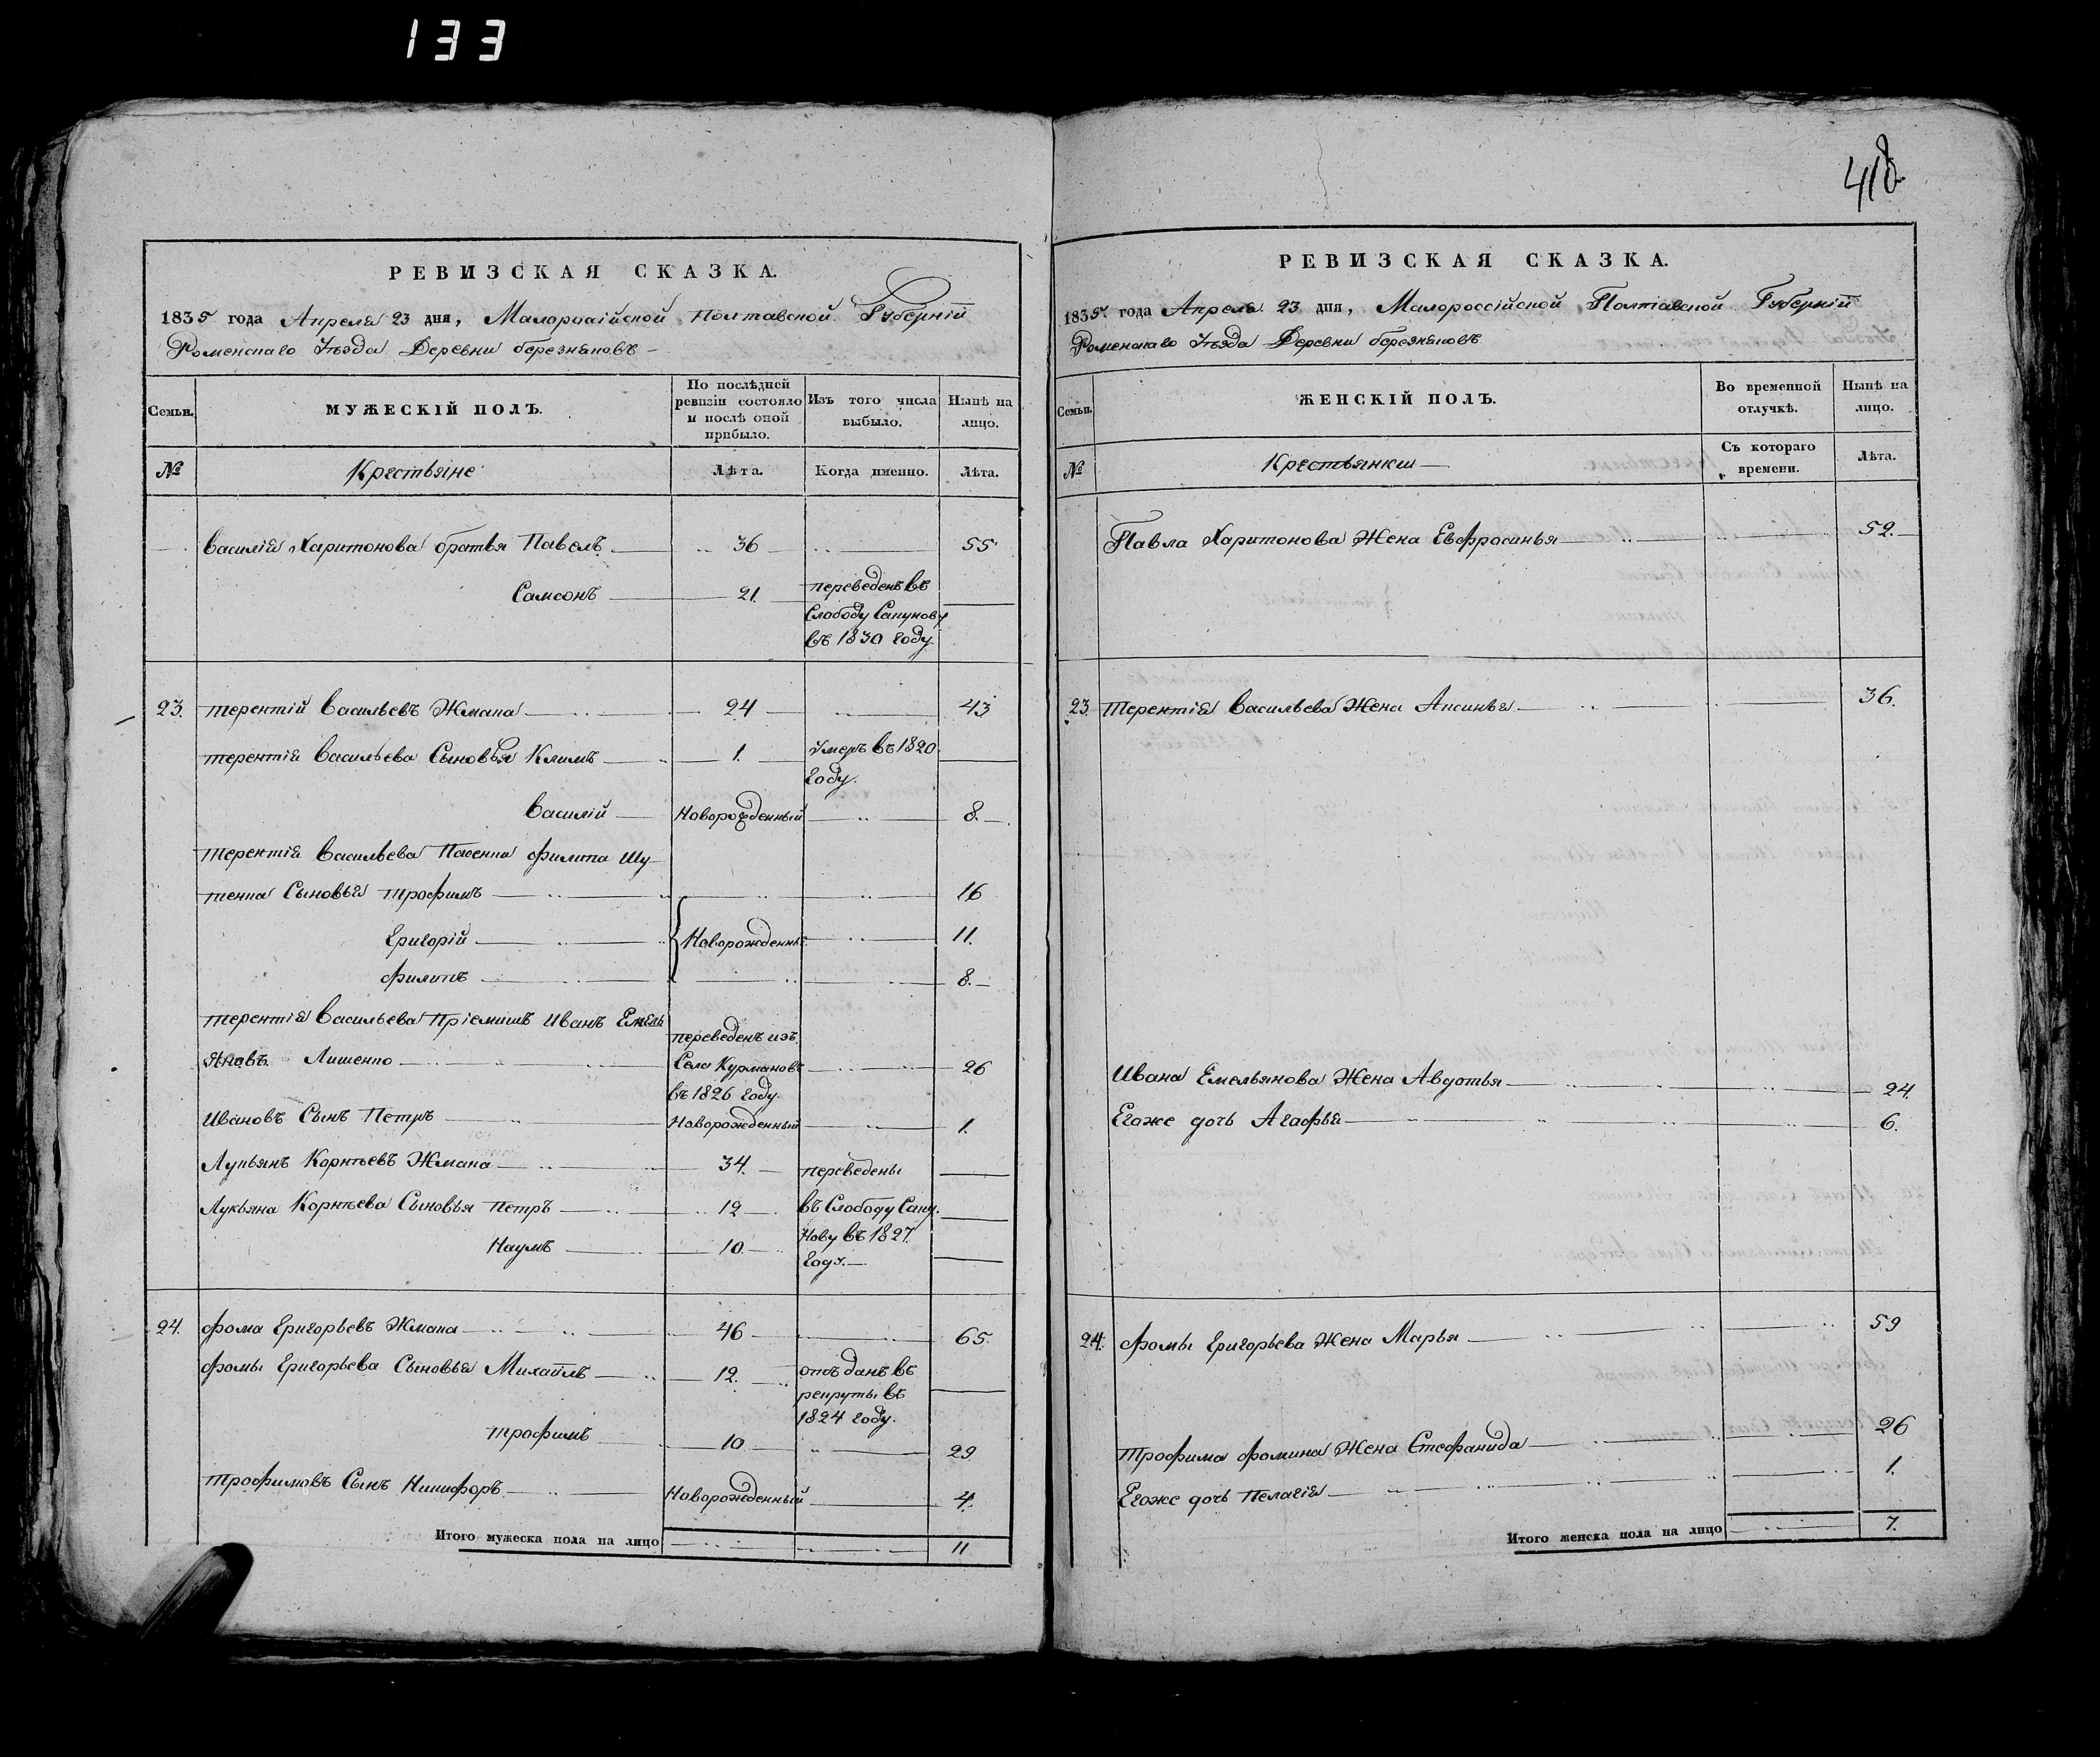 133
418.
РЕВИЗСКАЯ СКАЗКА.
1835 года Апреля 23 дня, Малороссійской Полтавской Губерніи
Роменскаго Уѣзда Деревни березняковъ
Семьи.
МУЖЕСКІЙ ПОЛЪ.
По послѣдней ревизіи состояло и послѣ оной прибыло.
Изъ того числа выбыло.
Нынѣ на лицо.
№ Крестьяне Лѣта. Когда именно. Лѣта.
Василія Харитонова братья Павелъ 36 55
Самсонъ 21. переведенъ въ
Слободу Сапунову
въ 1830 году.
23. терентій Васильевъ Жмака 24 43
терентія Васильева Сыновья Климъ 1. Умеръ въ 1820.
году.
Василій Новорожденный 8.
терентія Васильева Пасенка филипа Шу
тенка Сыновья трофимъ 16
Григорій Новорожденные 11.
филипъ 8.
терентія Васильева Пріемышъ Иванъ Емель
яновъ Лишенко переведенъ изъ
Села Курмановъ 26
въ 1826 году.
Ивановъ Сынъ Петръ Новорожденный 1.
Лукьянъ Корнѣевъ Жмака 34. переведены
Лукьяна Корнѣева Сыновья Петръ 12 въ Слободу Сапу
Наумъ 10. нову въ 1827.
году.
24. фома Григорьевъ Жмака 46 65.
фомы Григорьева Сыновья Михаилъ 12. отъданъ въ
рекруты въ
1824 году.
трофимъ 10 29
трофимовъ Сынъ Никифоръ Новорожденный 4.
Итого мужеска пола на лицо 11
РЕВИЗСКАЯ СКАЗКА.
1835. года Апреля 23 дня, Малороссійской Полтавской Губерніи
Роменскаго Уѣзда Деревни березняковъ
Семьи.
ЖЕНСКІЙ ПОЛЪ.
Во временной отлучкѣ.
Нынѣ на лицо.
№ Крестьянки Съ котораго времени. Лѣта.
Павла Харитонова Жена Евфросинья 52.
23. Терентія Васильева Жена Аксинья 36.
Ивана Емельянова Жена Авдотья 24.
Егоже дочь Агафья 6.
24. фомы Григорьева Жена Марья 59
Трофима фомина Жена Стефанида 26
Егоже дочь Пелагія 1.
Итого женска пола на лицо 7.